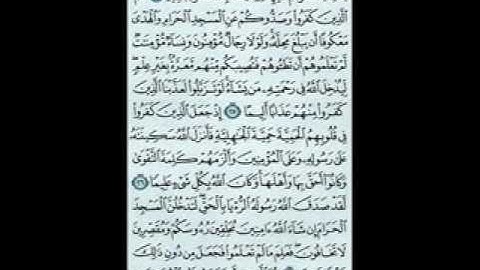 الَّذِينَ كَفَرُوا وَصَدُّوكُمْ عَنِ الْمَسْجِدِ الْحَرَامِ وَالْهَدْيَ
مَعْكُوفًا أَن يَبْلُغَ مَحِلَّهُ وَلَوْلَا رِجَالٌ مُّؤْمِنُونَ وَنِسَاءٌ مُّؤْمِنَاتٌ
لَّمْ تَعْلَمُوهُمْ أَن تَطَئُوهُمْ فَتُصِيبَكُم مِّنْهُم مَّعَرَّةٌ بِغَيْرِ عِلْمٍ
لِّيُدْخِلَ اللَّهُ فِي رَحْمَتِهِ مَن يَشَاءُ لَوْ تَزَيَّلُوا لَعَذَّبْنَا الَّذِينَ
كَفَرُوا مِنْهُمْ عَذَابًا أَلِيمًا ٢٥ إِذْ جَعَلَ الَّذِينَ كَفَرُوا
فِي قُلُوبِهِمُ الْحَمِيَّةَ حَمِيَّةَ الْجَاهِلِيَّةِ فَأَنزَلَ اللَّهُ سَكِينَتَهُ
عَلَىٰ رَسُولِهِ وَعَلَى الْمُؤْمِنِينَ وَأَلْزَمَهُمْ كَلِمَةَ التَّقْوَىٰ
وَكَانُوا أَحَقَّ بِهَا وَأَهْلَهَا وَكَانَ اللَّهُ بِكُلِّ شَيْءٍ عَلِيمًا ٢٦
لَّقَدْ صَدَقَ اللَّهُ رَسُولَهُ الرُّؤْيَا بِالْحَقِّ لَتَدْخُلُنَّ الْمَسْجِدَ
الْحَرَامَ إِن شَاءَ اللَّهُ آمِنِينَ مُحَلِّقِينَ رُءُوسَكُمْ وَمُقَصِّرِينَ
لَا تَخَافُونَ فَعَلِمَ مَا لَمْ تَعْلَمُوا فَجَعَلَ مِن دُونِ ذَٰلِكَ